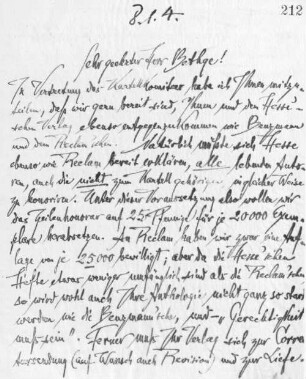 212
8.1.4.
Sehr geehrter Herr Bethge!
In Vertretung des Kartellkomitees habe ich Ihnen mitzu=
teilen, dass wir gern bereit sind, Ihnen und dem Hesse=
schen Verlag ebenso entgegenzukommen wie Benzmann
und dem Reclam'schen. Natürlich müsste sich Hesse
ebenso wie Reclam bereit erklären, alle lebenden Auto=
ren, auch die nicht zum Kartell gehörigen, in gleicher Weise
zu honorieren. Unter dieser Voraussetzung also wollen wir
das Zeilenhonorar auf 25 Pfennige für je 20000 Exem=
plare herabsetzen. An Reclam haben wir zwar eine Auf=
lage von je 25000 bewilligt; aber da die Hesse'schen
Hefte etwas weniger umfänglich sind als die Reclam'schen,
so wird wohl auch Ihre Anthologie nicht ganz so stark
werden wie die Benzmann'sche, und „Gerechtigkeit
muss sein". Ferner muss Ihr Verlag sich zur Correctur=
zusendung (auf Wunsch auch Revision) und zur Liefe=